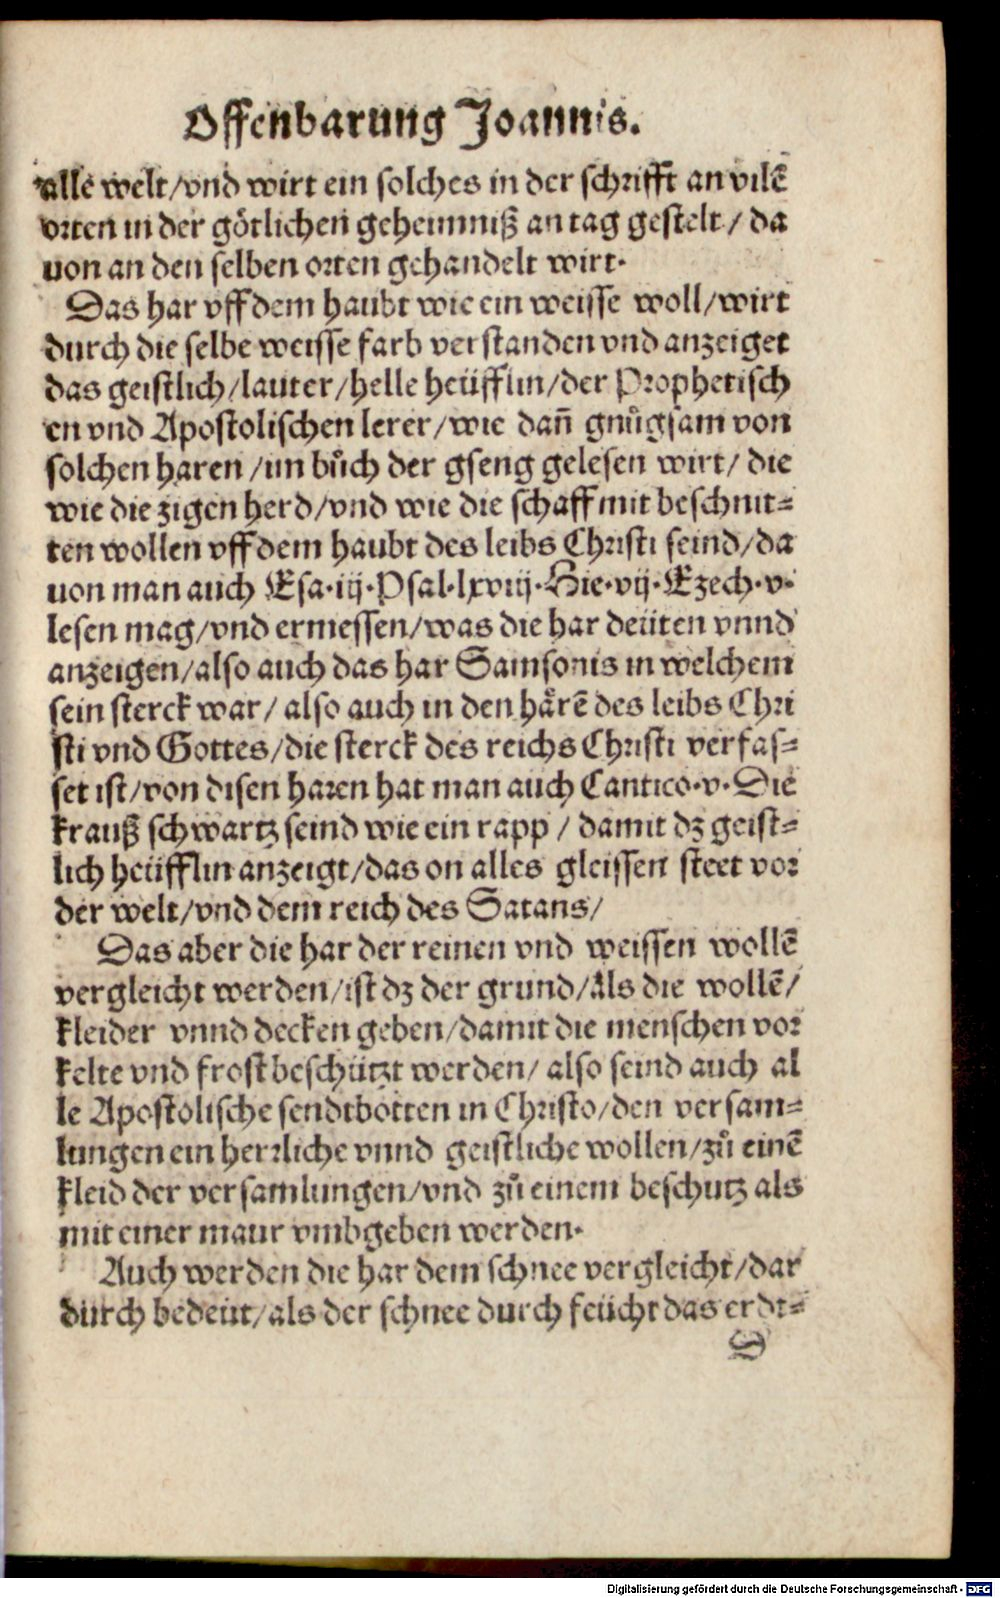 Offenbarung Joannis.
alle welt/vnd wirt ein solches in der schrifft an vilẽ
orten in der götlichen geheimniß an tag gestelt/ da
uon an den selben orten gehandelt wirt.
Das har vff dem haubt wie ein weisse woll/wirt
durch die selbe weisse farb verstanden vnd anzeiget
das geistlich/lauter/helle heüfflin/der Prophetisch
en vnd Apostolischen lerer/wie dañ gnůgsam von
solchen haren /im bůch der gseng gelesen wirt/ die
wie die zigen herd/vnd wie die schaff mit beschnit⸗
ten wollen vff dem haubt des leibs Christi seind/da
uon man auch Esa.iij.Psal.lxviij.Hie.vij.Ezech.v.
lesen mag/vnd ermessen/was die har deüten vnnd
anzeigen/also auch das har Samsonis in welchem
sein sterck war/ also auch in den hårẽ des leibs Chri
sti vnd Gottes/die sterck des reichs Christi verfas⸗
set ist/von disen haren hat man auch Cantico.v.Die
krauß schwartz seind wie ein rapp / damit dz geist⸗
lich heüfflin anzeigt/das on alles gleissen steet vor
der welt/vnd dem reich des Satans/
Das aber die har der reinen vnd weissen wollẽ
vergleicht werden/ist dz der grund/Als die wollẽ/
kleider vnnd decken geben/damit die menschen vor
kelte vnd frost beschützt werden/ also seind auch al
le Apostolische sendtbotten in Christo/den versam⸗
lungen ein herrliche vnnd geistliche wollen/zů einẽ
kleid der versamlungen/vnd zů einem beschutz als
mit einer maur vmbgeben werden.
Auch werden die har dem schnee vergleicht/dar
durch bedeüt/als der schnee durch feücht das erdt⸗
S
Digitalisierung gefördert durch die Deutsche Forschungsgemeinschaft - DFG